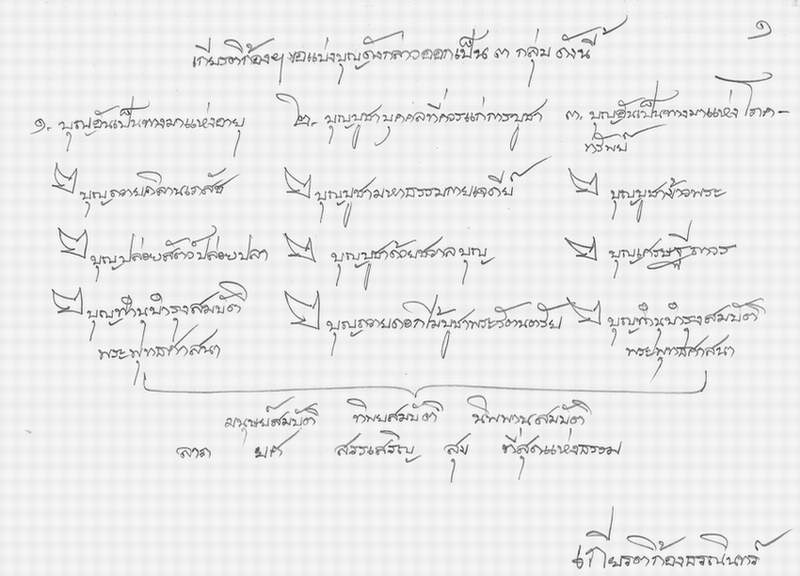 ๑
เกียรติก้องฯ ขอแบ่งบุญดังกล่าวออกเป็น ๓ กลุ่ม ดังนี้
๑. บุญอันเป็นทางมาแห่งอายุ
๒. บุญบูชาบุคคลที่ควรแก่การบูชา
๓. บุญอันเป็นทางมาแห่งโภค-
ทรัพย์
บุญถวายคิลานเภสัช
บุญบูชามหาธรรมกายเจดีย์
บุญบูชาข้าวพระ
บุญปล่อยสัตว์ปล่อยปลา
บุญบูชาด้วยชวาลบุญ
บุญเศรษฐีถาวร
บุญทำนุบำรุงสมบัติ
พระพุทธศาสนา
บุญถวายดอกไม้บูชาพระรัตนตรัย
บุญทำนุบำรุงสมบัติ
พระพุทธศาสนา
มนุษย์สมบัติ ทิพยสมบัติ นิพพานสมบัติ
ลาภ ยศ สรรเสริญ สุข ที่สุดแห่งธรรม
เกียรติก้องธรณินทร์